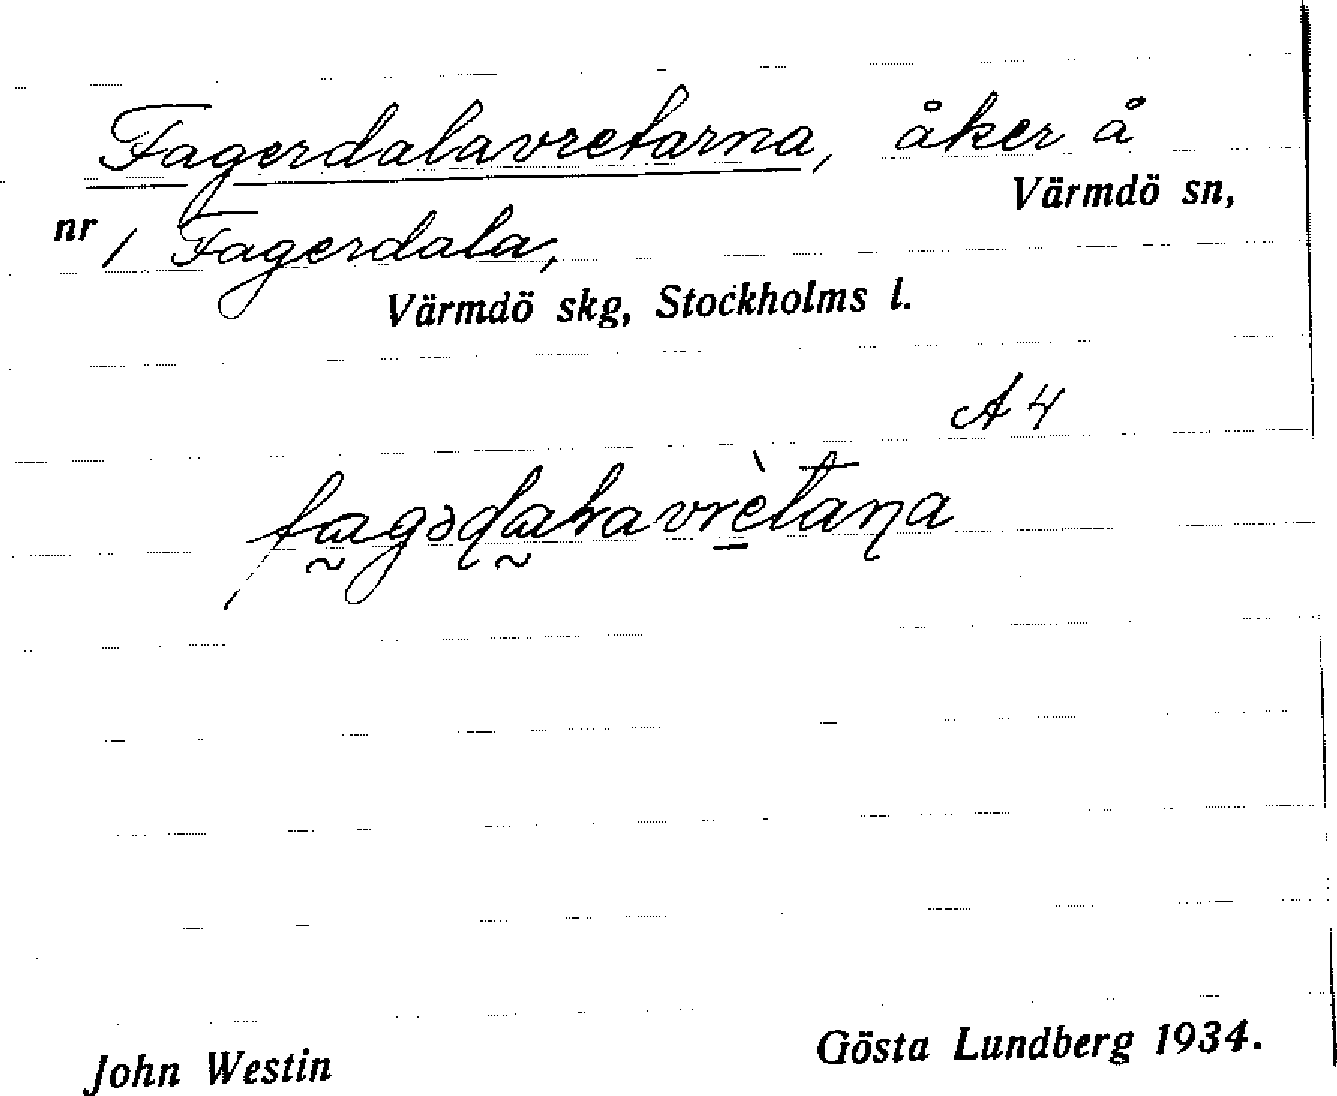 Fagerdalavretarna, åker å
Värmdö sn,
nr 1 Fagerdala,
Värmdö skg, Stockholms l.
A 4
John Westin
Gösta Lundberg 1934.